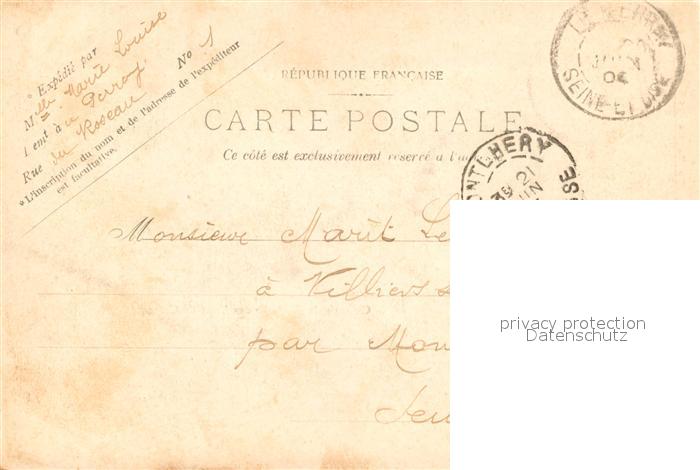 * Expédié par
Mlle Marie Louise
1 ent à u Perray
Rue du Roseau No 1
* L'inscription du nom et de l'adresse de l'expéditeur
est facultative.
RÉPUBLIQUE FRANÇAISE
CARTE POSTALE
Ce côté est exclusivement reservé a l'a
SEINE-ET-OISE
04
ONTLHERY
21
Monsieur
à Villiers s
par Mon
Sei
privacy protection
Datenschutz